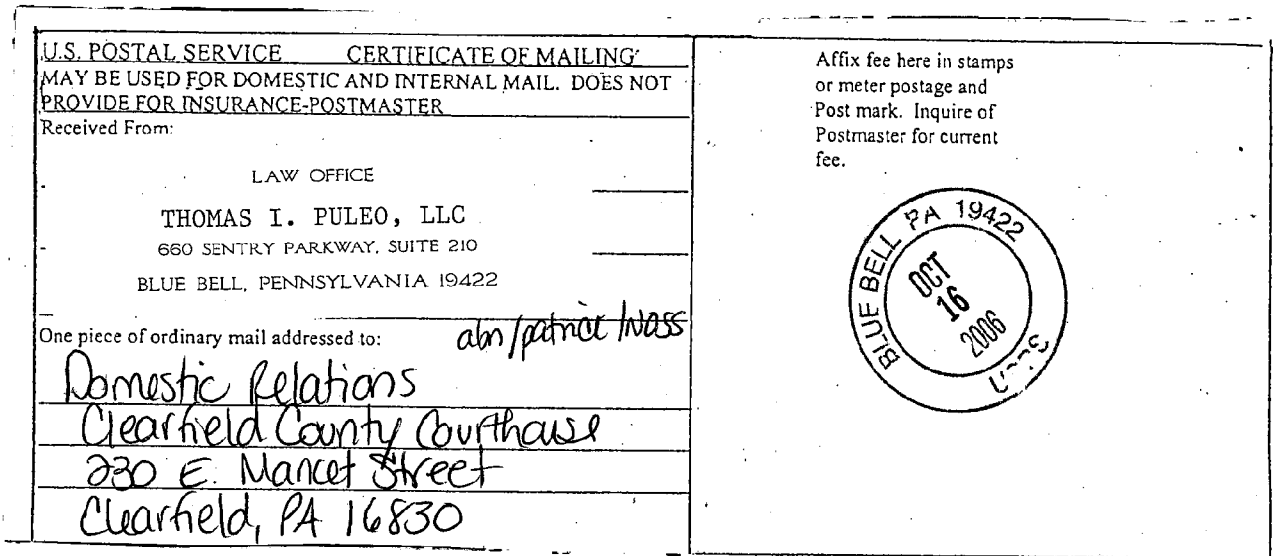 U.S. POSTAL SERVICE CERTIFICATE OF MAILING
MAY BE USED FOR DOMESTIC AND INTERNAL MAIL. DOES NOT
PROVIDE FOR INSURANCE-POSTMASTER
Received From:
LAW OFFICE
THOMAS I. PULEO, LLC
660 SENTRY PARKWAY, SUITE 210
BLUE BELL, PENNSYLVANIA 19422
One piece of ordinary mail addressed to:
abn/patrick/
Domestic Relations
Clearfield County Courthouse
230 E. Market Street
Clearfield, PA 16830
Affix fee here in stamps
or meter postage and
Post mark. Inquire of
Postmaster for current
fee.
BLUE BELL PA 19422
OCT
16
2006